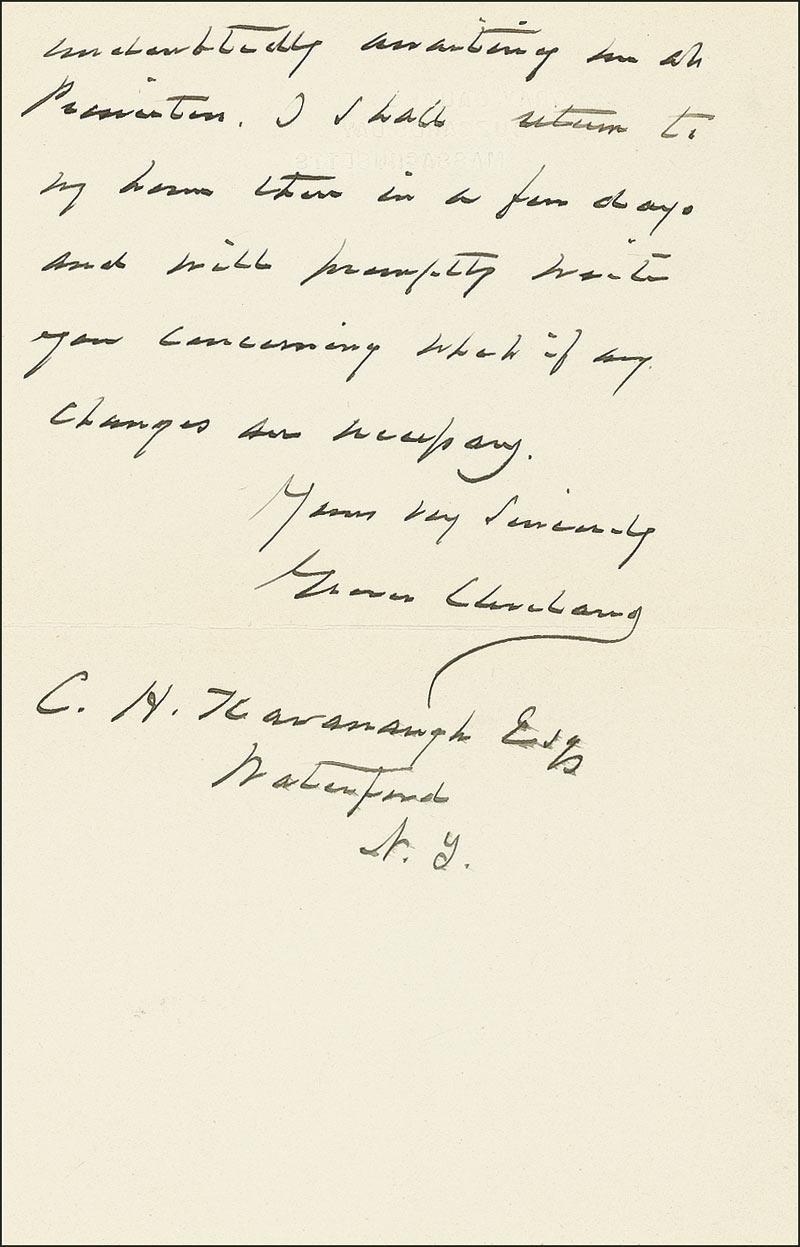 undoubtedly awaiting me at
Princeton. I shall return to
my home there in a few days
and will promptly write
you concerning what if any
changes are necessary.
Yours very sincerely
Grover Cleveland
C. H. Kavanaugh Esq
Waterford
N. Y.